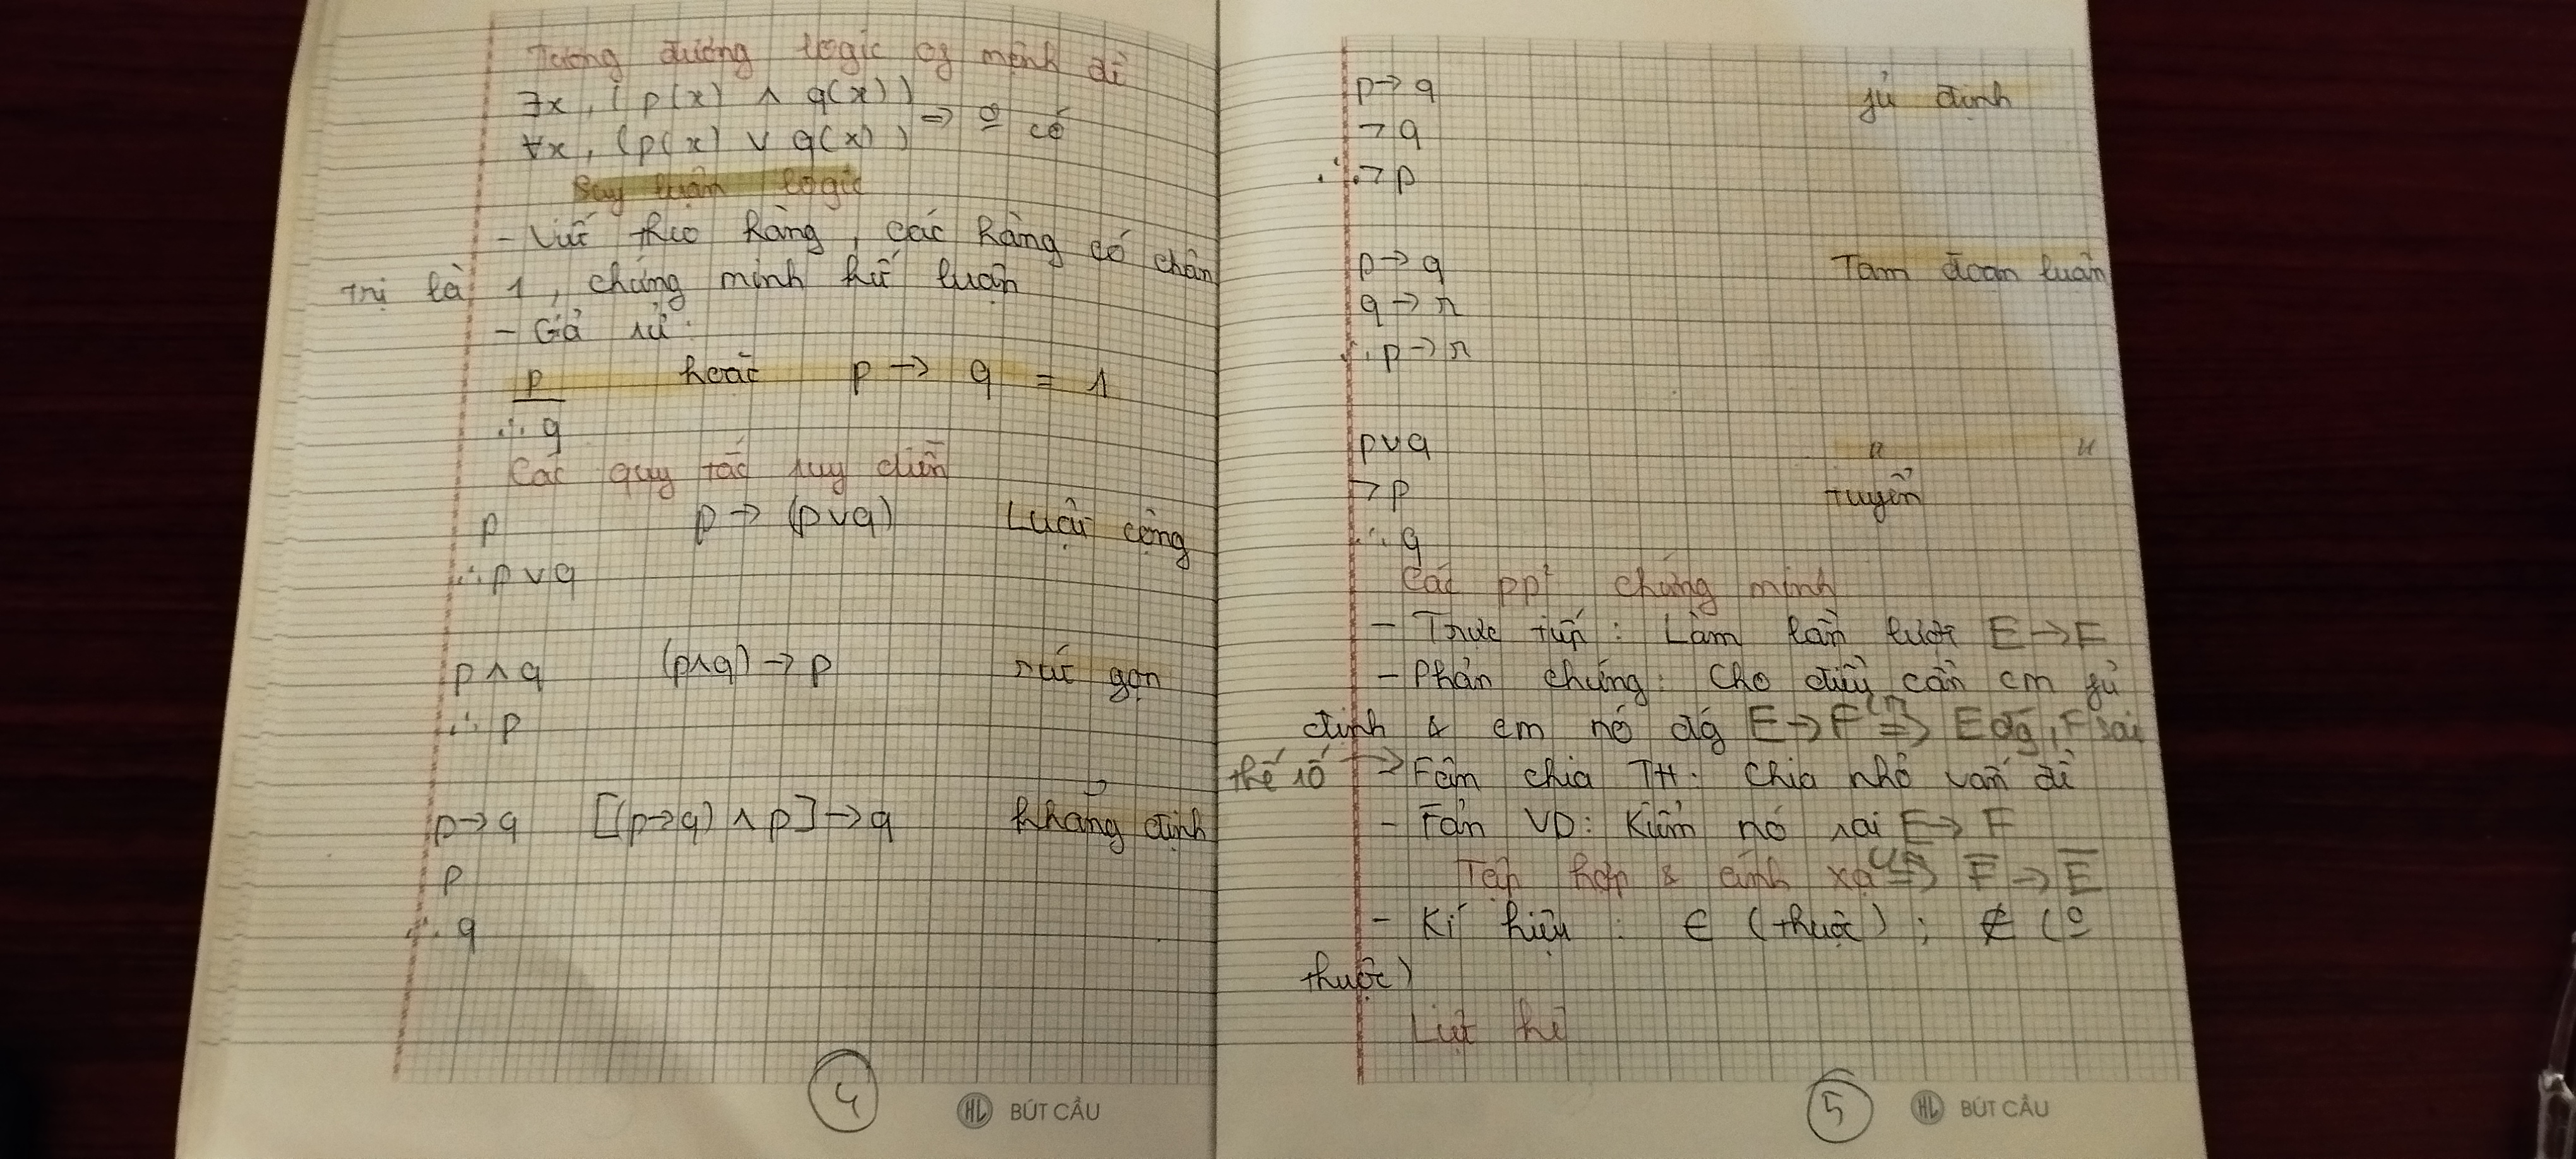 Tương đương logic of mệnh đề
∃x, (p(x) ∧ q(x))
∀x, (p(x) ∨ q(x)) ⇒ có
Suy luận logic
- Viết theo hàng, các hàng có chân
trị là 1, chứng minh kết luận
- Giả sử:
p hoặc p → q = 1
∴ q
Các quy tắc suy diễn
p p → (p∨q) Luật cộng
∴ p ∨ q
p ∧ q (p∧q) → p rút gọn
∴ p
p → q [(p→q) ∧ p] → q khẳng định
p
∴ q
4
HL BÚT CẦU
p → q fủ định
¬q
∴ ¬p
p → q Tam đoạn luận
q → r
∴ p → r
p∨q " "
¬p tuyển
∴ q
Các pp² chứng minh
- Trực tiếp: Làm lần lượt E → F
- Phản chứng: Cho điều cần cm fủ
định & cm nó đg E → F ⇒ E đg, F sai
thế số → Fân chia TH: Chia nhỏ vấn đề
- Fản VD: Kiểm nó sai E → F
Tập hợp & ánh xạ ⇒ F̅ → E̅
- Kí hiệu: ∈ (thuộc); ∉ (
thuộc)
Liệt kê
5
HL BÚT CẦU